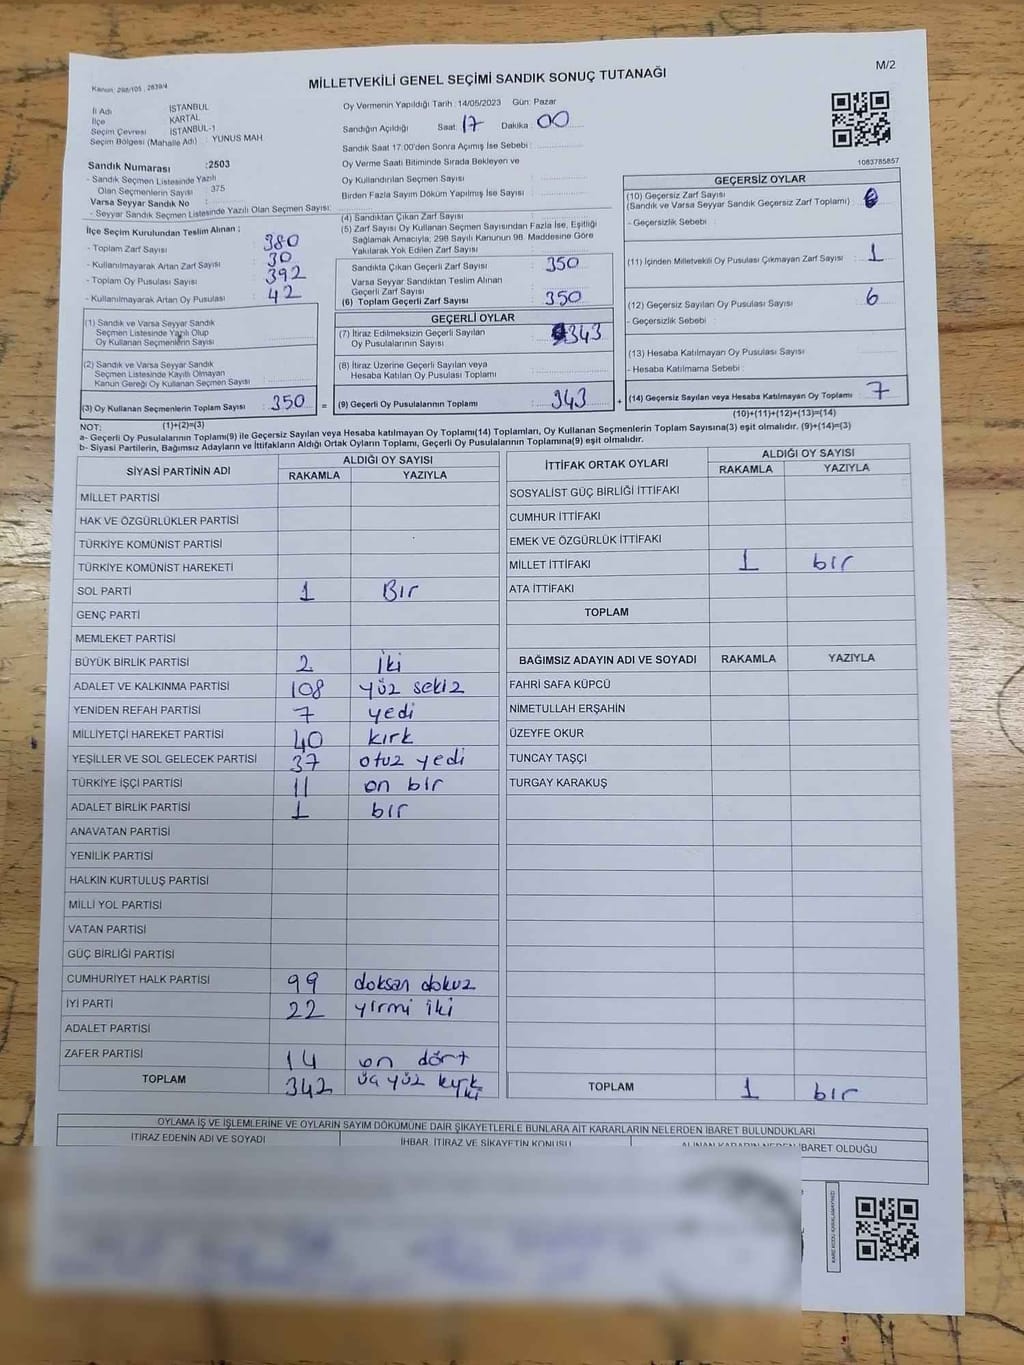 Kanun: 298/105 , 2839/4
MİLLETVEKİLİ GENEL SEÇİMİ SANDIK SONUÇ TUTANAĞI
M/2
İl Adı İSTANBUL
İlçe KARTAL
Seçim Çevresi İSTANBUL-1
Seçim Bölgesi (Mahalle Adı) : YUNUS MAH
Sandık Numarası :2503
- Sandık Seçmen Listesinde Yazılı
Olan Seçmenlerin Sayısı : 375
Varsa Seyyar Sandık No
- Seyyar Sandık Seçmen Listesinde Yazılı Olan Seçmen Sayısı:
İlçe Seçim Kurulundan Teslim Alınan ;
- Toplam Zarf Sayısı : 380
- Kullanılmayarak Artan Zarf Sayısı : 30
- Toplam Oy Pusulası Sayısı : 392
- Kullanılmayarak Artan Oy Pusulası : 42
(1) Sandık ve Varsa Seyyar Sandık
Seçmen Listesinde Yazılı Olup
Oy Kullanan Seçmenlerin Sayısı
(2) Sandık ve Varsa Seyyar Sandık
Seçmen Listesinde Kayıtlı Olmayan
Kanun Gereği Oy Kullanan Seçmen Sayısı
(3) Oy Kullanan Seçmenlerin Toplam Sayısı : 350 =
Oy Vermenin Yapıldığı Tarih : 14/05/2023 Gün: Pazar
Sandığın Açıldığı Saat: 17 Dakika : 00
Sandık Saat 17:00'den Sonra Açımış İse Sebebi :
Oy Verme Saati Bitiminde Sırada Bekleyen ve
Oy Kullandırılan Seçmen Sayısı :
Birden Fazla Sayım Döküm Yapılmış İse Sayısı :
(4) Sandıktan Çıkan Zarf Sayısı
(5) Zarf Sayısı Oy Kullanan Seçmen Sayısından Fazla İse, Eşitliği
Sağlamak Amacıyla, 298 Sayılı Kanunun 98. Maddesine Göre
Yakılarak Yok Edilen Zarf Sayısı
Sandıkta Çıkan Geçerli Zarf Sayısı : 350
Varsa Seyyar Sandıktan Teslim Alınan
Geçerli Zarf Sayısı
(6) Toplam Geçerli Zarf Sayısı : 350
GEÇERLİ OYLAR
(7) İtiraz Edilmeksizin Geçerli Sayılan
Oy Pusulalarının Sayısı : 343
(8) İtiraz Üzerine Geçerli Sayılan veya
Hesaba Katılan Oy Pusulası Toplamı
(9) Geçerli Oy Pusulalarının Toplamı : 343 +
1083785857
GEÇERSİZ OYLAR
(10) Geçersiz Zarf Sayısı
(Sandık ve Varsa Seyyar Sandık Geçersiz Zarf Toplamı) :
- Geçersizlik Sebebi :
(11) İçinden Milletvekili Oy Pusulası Çıkmayan Zarf Sayısı : 1
(12) Geçersiz Sayılan Oy Pusulası Sayısı : 6
- Geçersizlik Sebebi :
(13) Hesaba Katılmayan Oy Pusulası Sayısı :
- Hesaba Katılmama Sebebi :
(14) Geçersiz Sayılan veya Hesaba Katılmayan Oy Toplamı : 7
NOT: (1)+(2)=(3) (10)+(11)+(12)+(13)=(14)
a- Geçerli Oy Pusulalarının Toplamı(9) ile Geçersiz Sayılan veya Hesaba katılmayan Oy Toplamı(14) Toplamları, Oy Kullanan Seçmenlerin Toplam Sayısına(3) eşit olmalıdır. (9)+(14)=(3)
b- Siyasi Partilerin, Bağımsız Adayların ve İttifakların Aldığı Ortak Oyların Toplamı, Geçerli Oy Pusulalarının Toplamına(9) eşit olmalıdır.
SİYASİ PARTİNİN ADI ALDIĞI OY SAYISI
RAKAMLA YAZIYLA
MİLLET PARTİSİ
HAK VE ÖZGÜRLÜKLER PARTİSİ
TÜRKİYE KOMÜNİST PARTİSİ
TÜRKİYE KOMÜNİST HAREKETİ
SOL PARTİ 1 Bir
GENÇ PARTİ
MEMLEKET PARTİSİ
BÜYÜK BİRLİK PARTİSİ 2 iki
ADALET VE KALKINMA PARTİSİ 108 yüz sekiz
YENİDEN REFAH PARTİSİ 7 yedi
MİLLİYETÇİ HAREKET PARTİSİ 40 kırk
YEŞİLLER VE SOL GELECEK PARTİSİ 37 otuz yedi
TÜRKİYE İŞÇİ PARTİSİ 11 on bir
ADALET BİRLİK PARTİSİ 1 bir
ANAVATAN PARTİSİ
YENİLİK PARTİSİ
HALKIN KURTULUŞ PARTİSİ
MİLLİ YOL PARTİSİ
VATAN PARTİSİ
GÜÇ BİRLİĞİ PARTİSİ
CUMHURİYET HALK PARTİSİ 99 doksan dokuz
İYİ PARTİ 22 yirmi iki
ADALET PARTİSİ
ZAFER PARTİSİ 14 on dört
TOPLAM 342 üç yüz kırk iki
İTTİFAK ORTAK OYLARI ALDIĞI OY SAYISI
RAKAMLA YAZIYLA
SOSYALİST GÜÇ BİRLİĞİ İTTİFAKI
CUMHUR İTTİFAKI
EMEK VE ÖZGÜRLÜK İTTİFAKI
MİLLET İTTİFAKI 1 bir
ATA İTTİFAKI
TOPLAM
BAĞIMSIZ ADAYIN ADI VE SOYADI RAKAMLA YAZIYLA
FAHRİ SAFA KÜPCÜ
NİMETULLAH ERŞAHİN
ÜZEYFE OKUR
TUNCAY TAŞÇI
TURGAY KARAKUŞ
TOPLAM 1 bir
OYLAMA İŞ VE İŞLEMLERİNE VE OYLARIN SAYIM DÖKÜMÜNE DAİR ŞİKAYETLERLE BUNLARA AİT KARARLARIN NELERDEN İBARET BULUNDUKLARI
İTİRAZ EDENİN ADI VE SOYADI İHBAR, İTİRAZ VE ŞİKAYETİN KONUSU ALINAN KARARIN NEDEN İBARET OLDUĞU